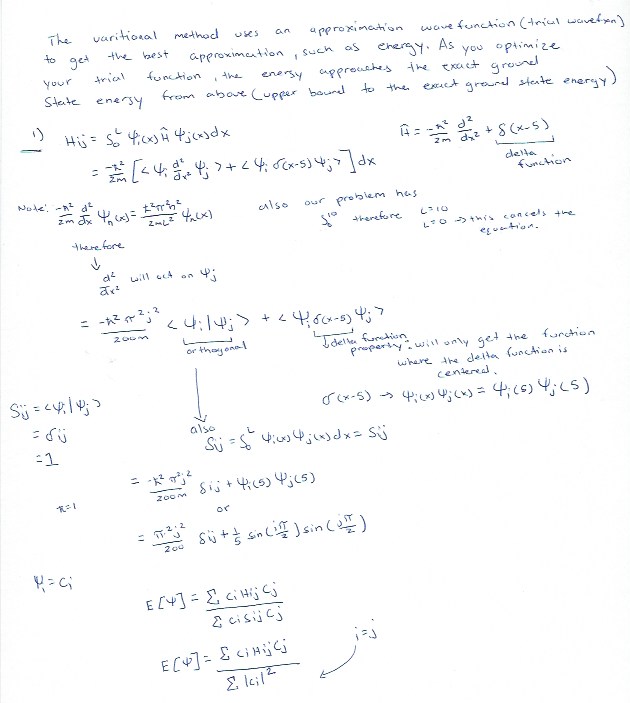 The varitioal method uses an approximation wavefunction (trial wavefxn)
to get the best approximation, such as energy. As you optimize
your trial function, the energy approaches the exact ground
state energy from above (upper bound to the exact ground state energy)
1) Hij = ∫₀ᴸ Ψi(x) Ĥ Ψj(x) dx
Ĥ = -ħ²/2m d²/dx² + δ(x-5)
delta function
= -ħ²/2m [<Ψi d²/dx² Ψj> + <Ψi δ(x-5) Ψj>] dx
Note: -ħ²/2m d²/dx Ψn(x) = ħ²π²n²/2mL² Ψn(x)
also our problem has
∫₀¹⁰ therefore L=10
L=0 → this cancels the equation.
therefore
↓
d²/dx² will act on Ψj
= -ħ²π²j²/200m <Ψi|Ψj> + <Ψi δ(x-5) Ψj>
orthogonal
↓ delta function property: will only get the function
where the delta function is
centered.
δ(x-5) → Ψi(x) Ψj(x) = Ψi(5) Ψj(5)
Sij = <Ψi|Ψj>
= δij
=1
also
Sij = ∫₀ᴸ Ψi(x) Ψj(x) dx = Sij
= -ħ²π²j²/200m δij + Ψi(5) Ψj(5)
ħ=1
or
= π²j²/200 δij + 1/5 sin(iπ/2) sin(jπ/2)
Ψi = ci
E[Ψ] = Σ ci Hij cj / Σ ci Sij cj
i=j
E[Ψ] = Σ ci Hij cj / Σ |ci|²